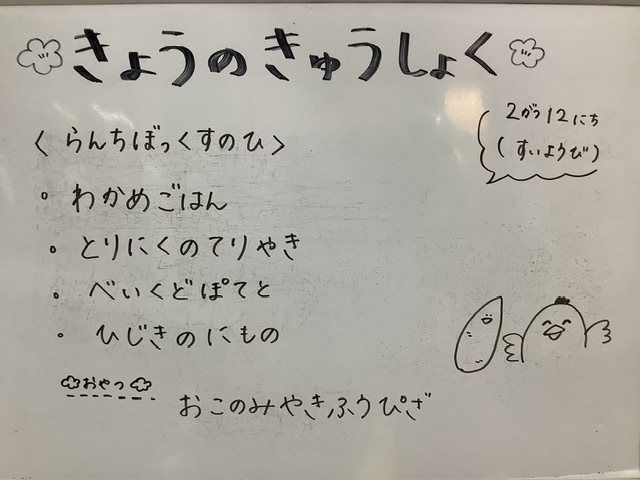 きょうのきゅうしょく
2がつ12にち
(すいようび)
〈らんちぼっくすのひ〉
・わかめごはん
・とりにくのてりやき
・べいくどぽてと
・ひじきのにもの
おやつ
おこのみやきふうぴざ